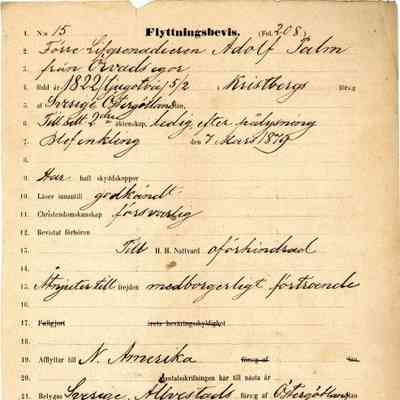 1. N:o 15 Flyttningsbevis. (Fol. 208.)
2. Förre Lifgrenadieren Adolf Palm
3. från
4. född år 1822 (tjugotvå) 5/2 Kristbergs förs:g
5. af Sverige Östergötlands län,
6. Till sitt 2dra äktenskap, ledig, efter
7. den 7 Mars 1879
8.
9. Har haft skyddskoppor
10. Läser innantill godkändt
11. Christendomskunskap försvarlig
12. Bevistat förhören
13. Till H. H. Nattvard oförhindrad
14.
15. Åtnjuter till frejden medborgerligt förtroende
16.
17. Fullgjort årets beväringsskyldighet
18.
19. Afflyttar till N. Amerika förs:g af län.
20. Mantalsskrifningen här till nästa år
21. Betygas Sverige, Allvestads förs:g af Östergötlands län